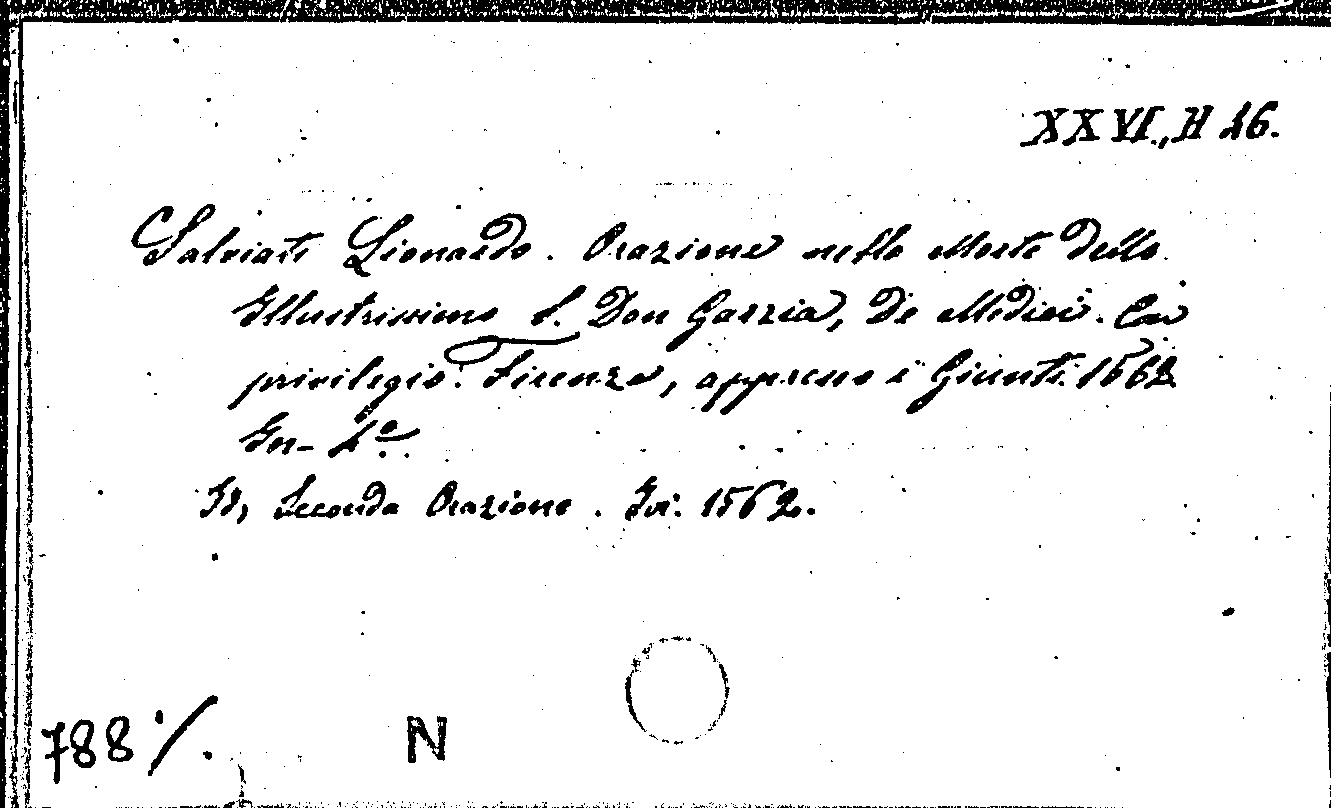 XXVI., H 46.
Salviati Lionardo. Orazione nella Morte dello
Illustrissimo S. Don Garzia, de Medici. Con
privilegio. Firenze, appresso i Giunti 1562
In- 4º.
Id, Seconda Orazione. Ivi. 1562.
788 /.
N